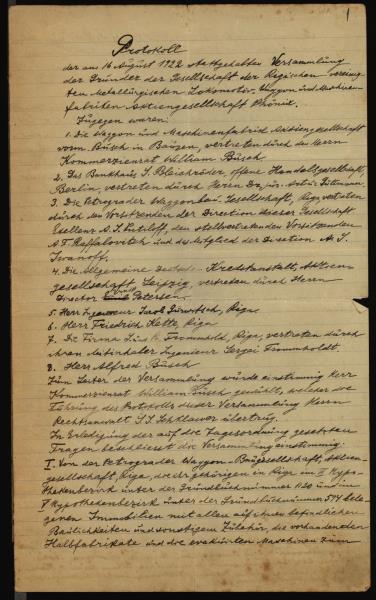 1
Protokoll
der am 16 August 1922 stattgehabten Versammlung
der Gründer der Gesellschaft der Rigischen vereinig-
ten Metallurgischen Lokomotiv, Waggon und Maschinen-
fabriken Aktiengesellschaft Phönix.
Zugegen waren:
1. Die Waggon und Maschinenfabrik Aktiengesellschaft
vorm. Busch in Bautzen, vertreten durch den Herrn
Kommerzienrat William Busch
2. Das Bankhaus S. Bleichröder, offene Handelsgesellschaft,
Berlin, vertreten durch Herrn Dr. jur.
3. Die Petrograder Waggonbau Gesellschaft, Riga, vertreten
durch den Vorsitzenden der Direction dieser Gesellschaft
Exellenz A. I. Putiloff, den stellvertretenden Vorsitzenden
A. F. Raffalovitch und das Mitglied der Direction A. I.
Iwanoff,
4. Die Allgemeine Deutsche Kreditanstalt, Aktien-
gesellschaft, Leipzig, vertreten durch Herrn
Director Petersen
5. Herr Ingenieur Jacob Gurwitsch, Riga
6. Herr Friedrich Kette, Riga
7. Die Firma Trommhold, Riga, vertreten durch
ihren Mitinhaber Ingenieur Sergei Trommholdt.
8. Herr Alfred Busch
Zum Leiter der Versammlung wurde einstimmig Herr
Kommerzienrat William Busch gewählt, welcher die
Führung des Protokolls dieser Versammlung Herrn
Rechtsanwalt Schklawer übertrug.
In Erledigung der auf die Tagesordnung gesetzten
Fragen beschliesst die Versammlung einstimmig:
I. Von der Petrograder Waggon-Baugesellschaft, Aktien-
gesellschaft, Riga, die ihr gehörigen in Riga im II Hypo-
thekenbezirk unter der Grundbuchnummer 1120 und im
V Hypothekenbezirk unter der Grundbuchnummer 574 bele-
genen Immobilien mit allen auf ihnen befindlichen
Baulichkeiten und sonstigem Zubehör, die vorhandenen
Halbfabrikate und die evakuirten Maschinen zum